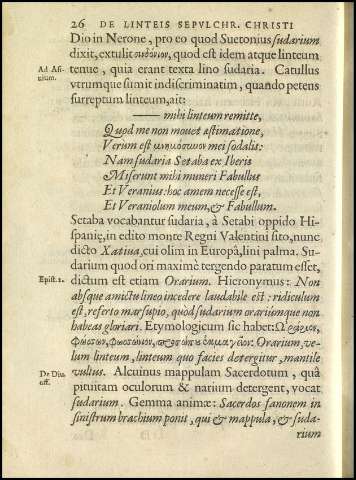 26 DE LINTEIS SEPVLCHR. CHRISTI
Dio in Nerone, pro eo quod Suetonius sudarium
dixit, extulit σινδόνιον, quod est idem atque linteum
Ad Asi-
nium.
tenue, quia erant texta lino sudaria. Catullus
vtrumque sumit indiscriminatim, quando petens
surreptum linteum, ait:
—— mihi linteum remitte,
Quod me non mouet æstimatione,
Verùm est μνημόσυνον mei sodalis:
Nam sudaria Setaba ex Iberis
Miserunt mihi muneri Fabullus
Et Veranius: hoc amem necesse est,
Et Veraniolum meum, & Fabullum.
Setaba vocabantur sudaria, à Setabi oppido Hi-
spaniæ, in edito monte Regni Valentini sito, nunc
dicto Xatiua, cui olim in Europâ, lini palma. Su-
darium quod ori maximè tergendo paratum esset,
Epist. 2.
dictum est etiam Orarium. Hieronymus: Non
absque amictu lineo incedere laudabile est: ridiculum
est, referto marsupio, quod sudarium orariúmque non
habeas gloriari. Etymologicum sic habet: Ὠράριον,
Orarium, ve-
lum linteum, linteum quo facies detergitur, mantile
De Diu.
off.
vultus. Alcuinus mappulam Sacerdotum, quâ
pituitam oculorum & narium detergent, vocat
sudarium. Gemma animæ: Sacerdos fanonem in
sinistrum brachium ponit, qui & mappula, & suda-
rium